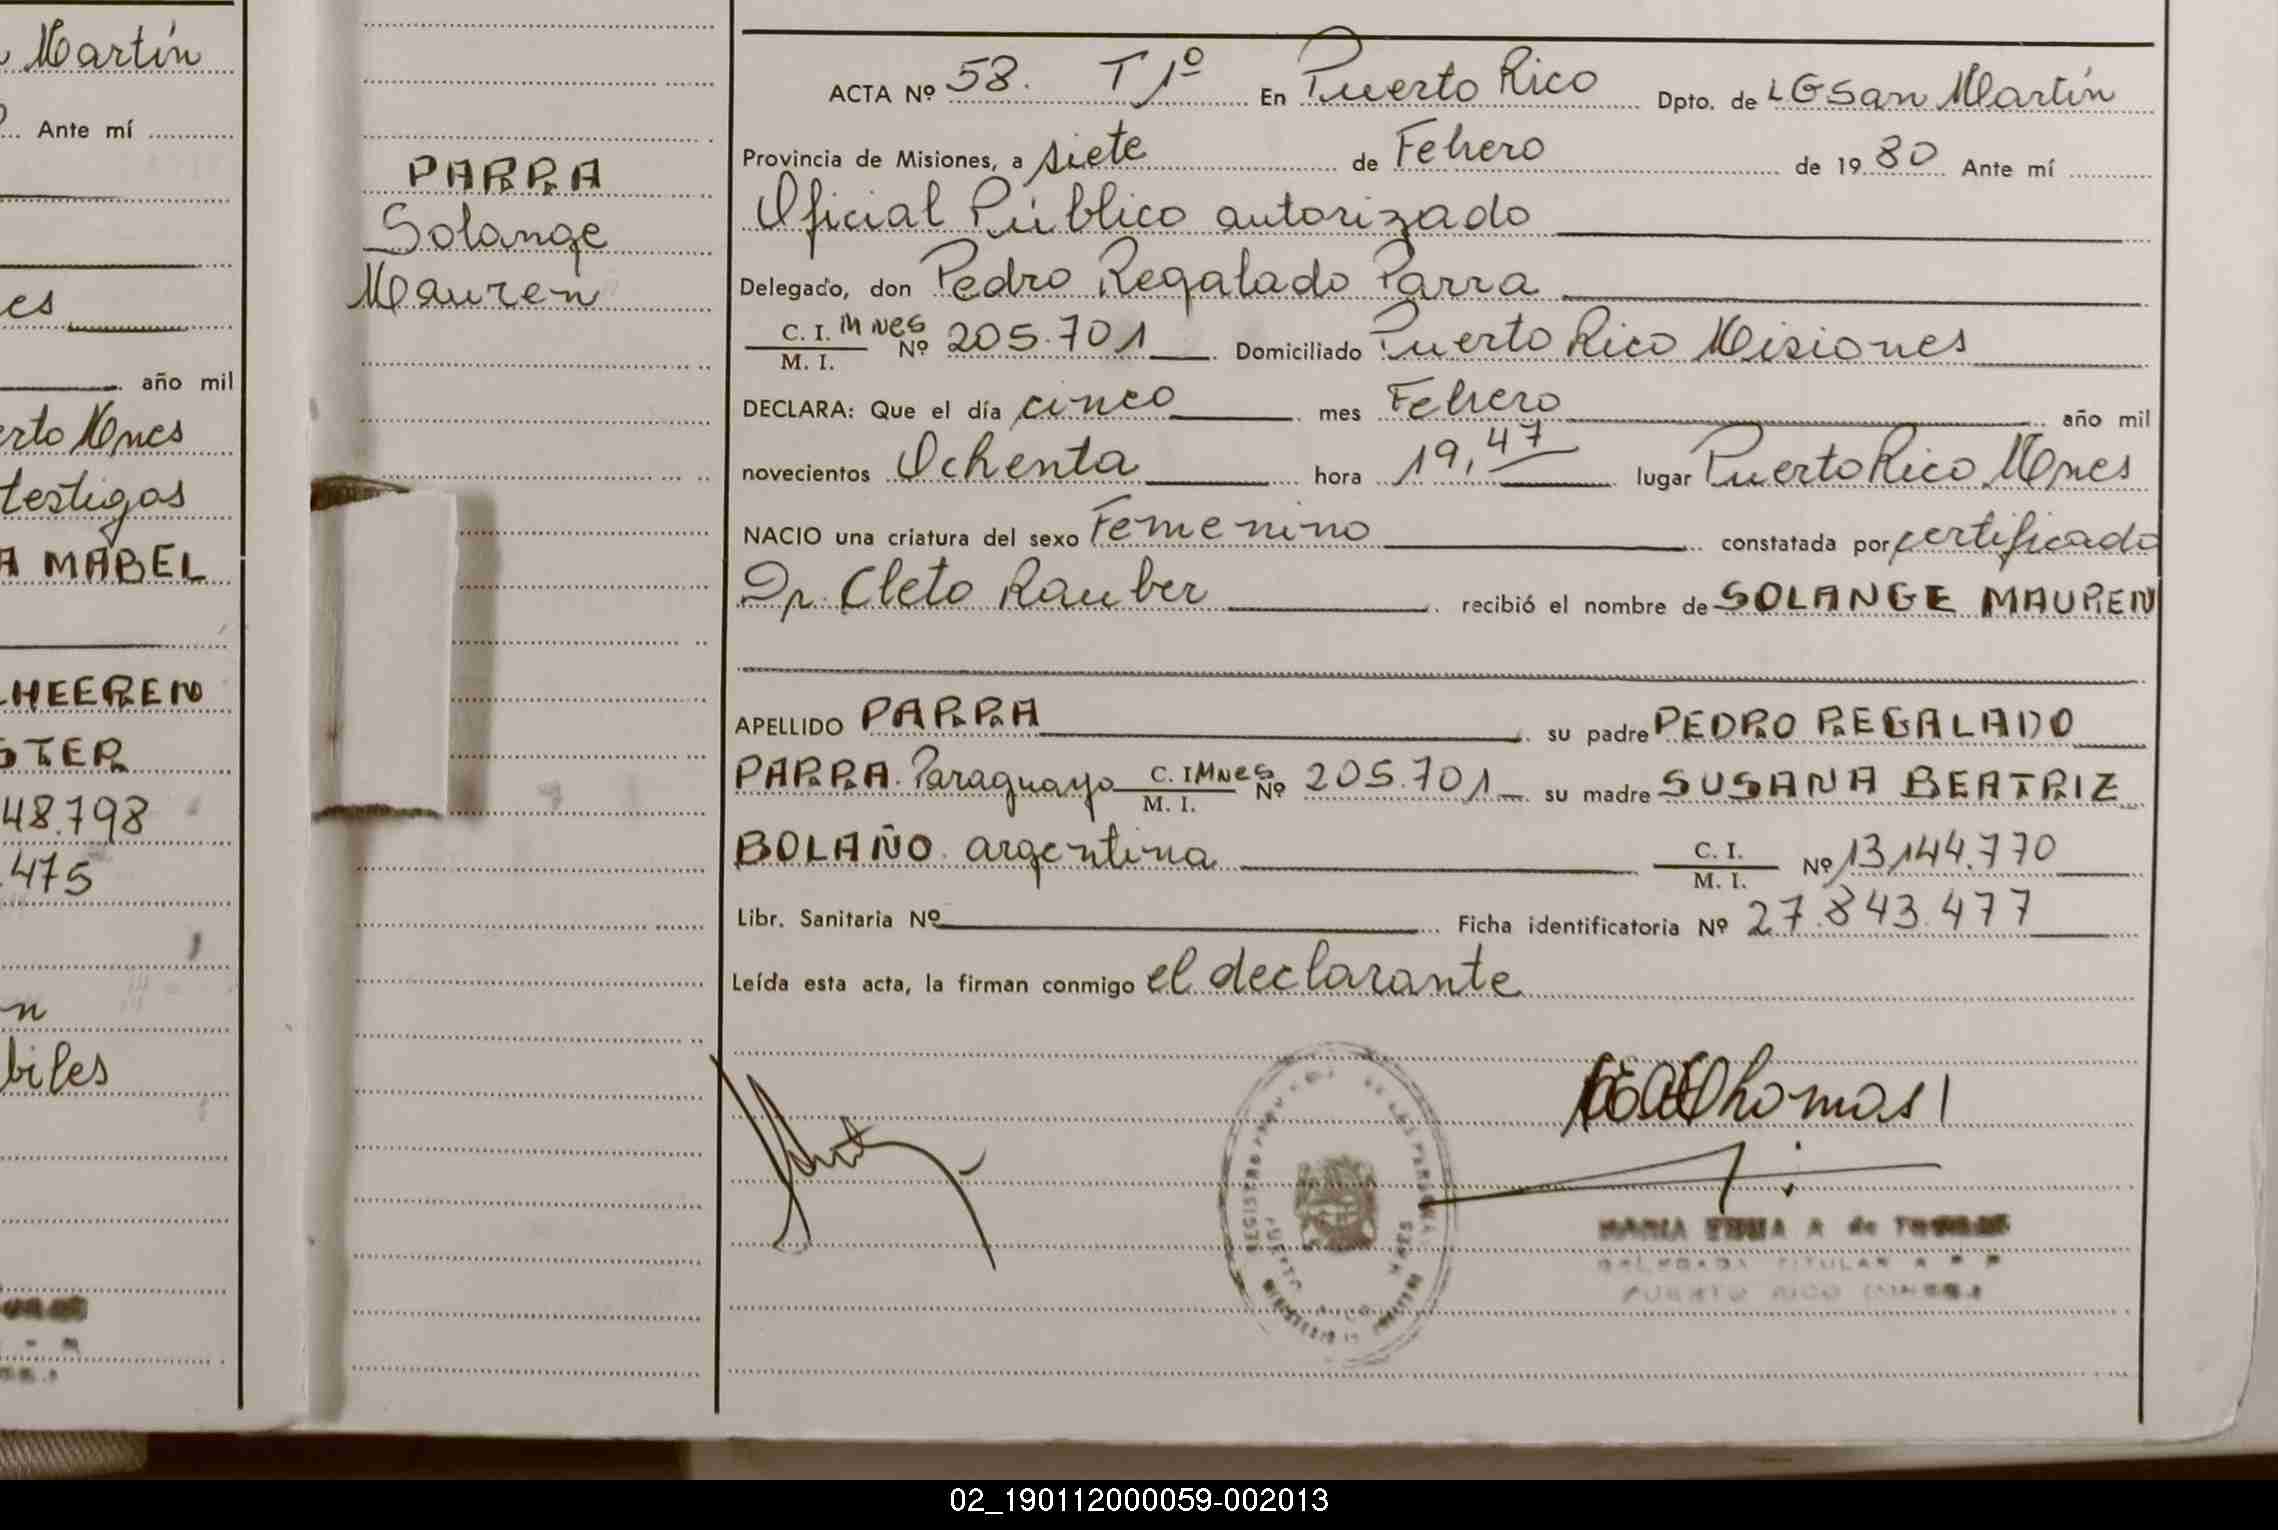 Martín
Ante mí
es
año mil
erto Mnes
testigos
A MABEL
LHEEREN
STER
48.798
.475
n
biles
PARRA
Solange
Mauren
ACTA Nº 58. T 1º En Puerto Rico Dpto. de LGSan Martín
Provincia de Misiones, a siete de Febrero de 19 80 Ante mí
Oficial Público autorizado
Delegado, don Pedro Regalado Parra
C. I. Mnes
M. I. Nº 205.701 Domiciliado Puerto Rico Misiones
DECLARA: Que el día cinco mes Febrero año mil
novecientos Ochenta hora 19,47 lugar Puerto Rico Mnes
NACIO una criatura del sexo Femenino constatada por certificado
Dr. Cleto Rauber recibió el nombre de SOLANGE MAUREN
APELLIDO PARRA su padre PEDRO REGALADO
PARRA. Paraguayo C. I Mnes M. I. Nº 205.701 su madre SUSANA BEATRIZ
BOLAÑO. argentina C. I. M. I. Nº 13.144.770
Libr. Sanitaria Nº Ficha identificatoria Nº 27.843.477
Leída esta acta, la firman conmigo el declarante
MARIA A de
TITULAR
02_190112000059-002013